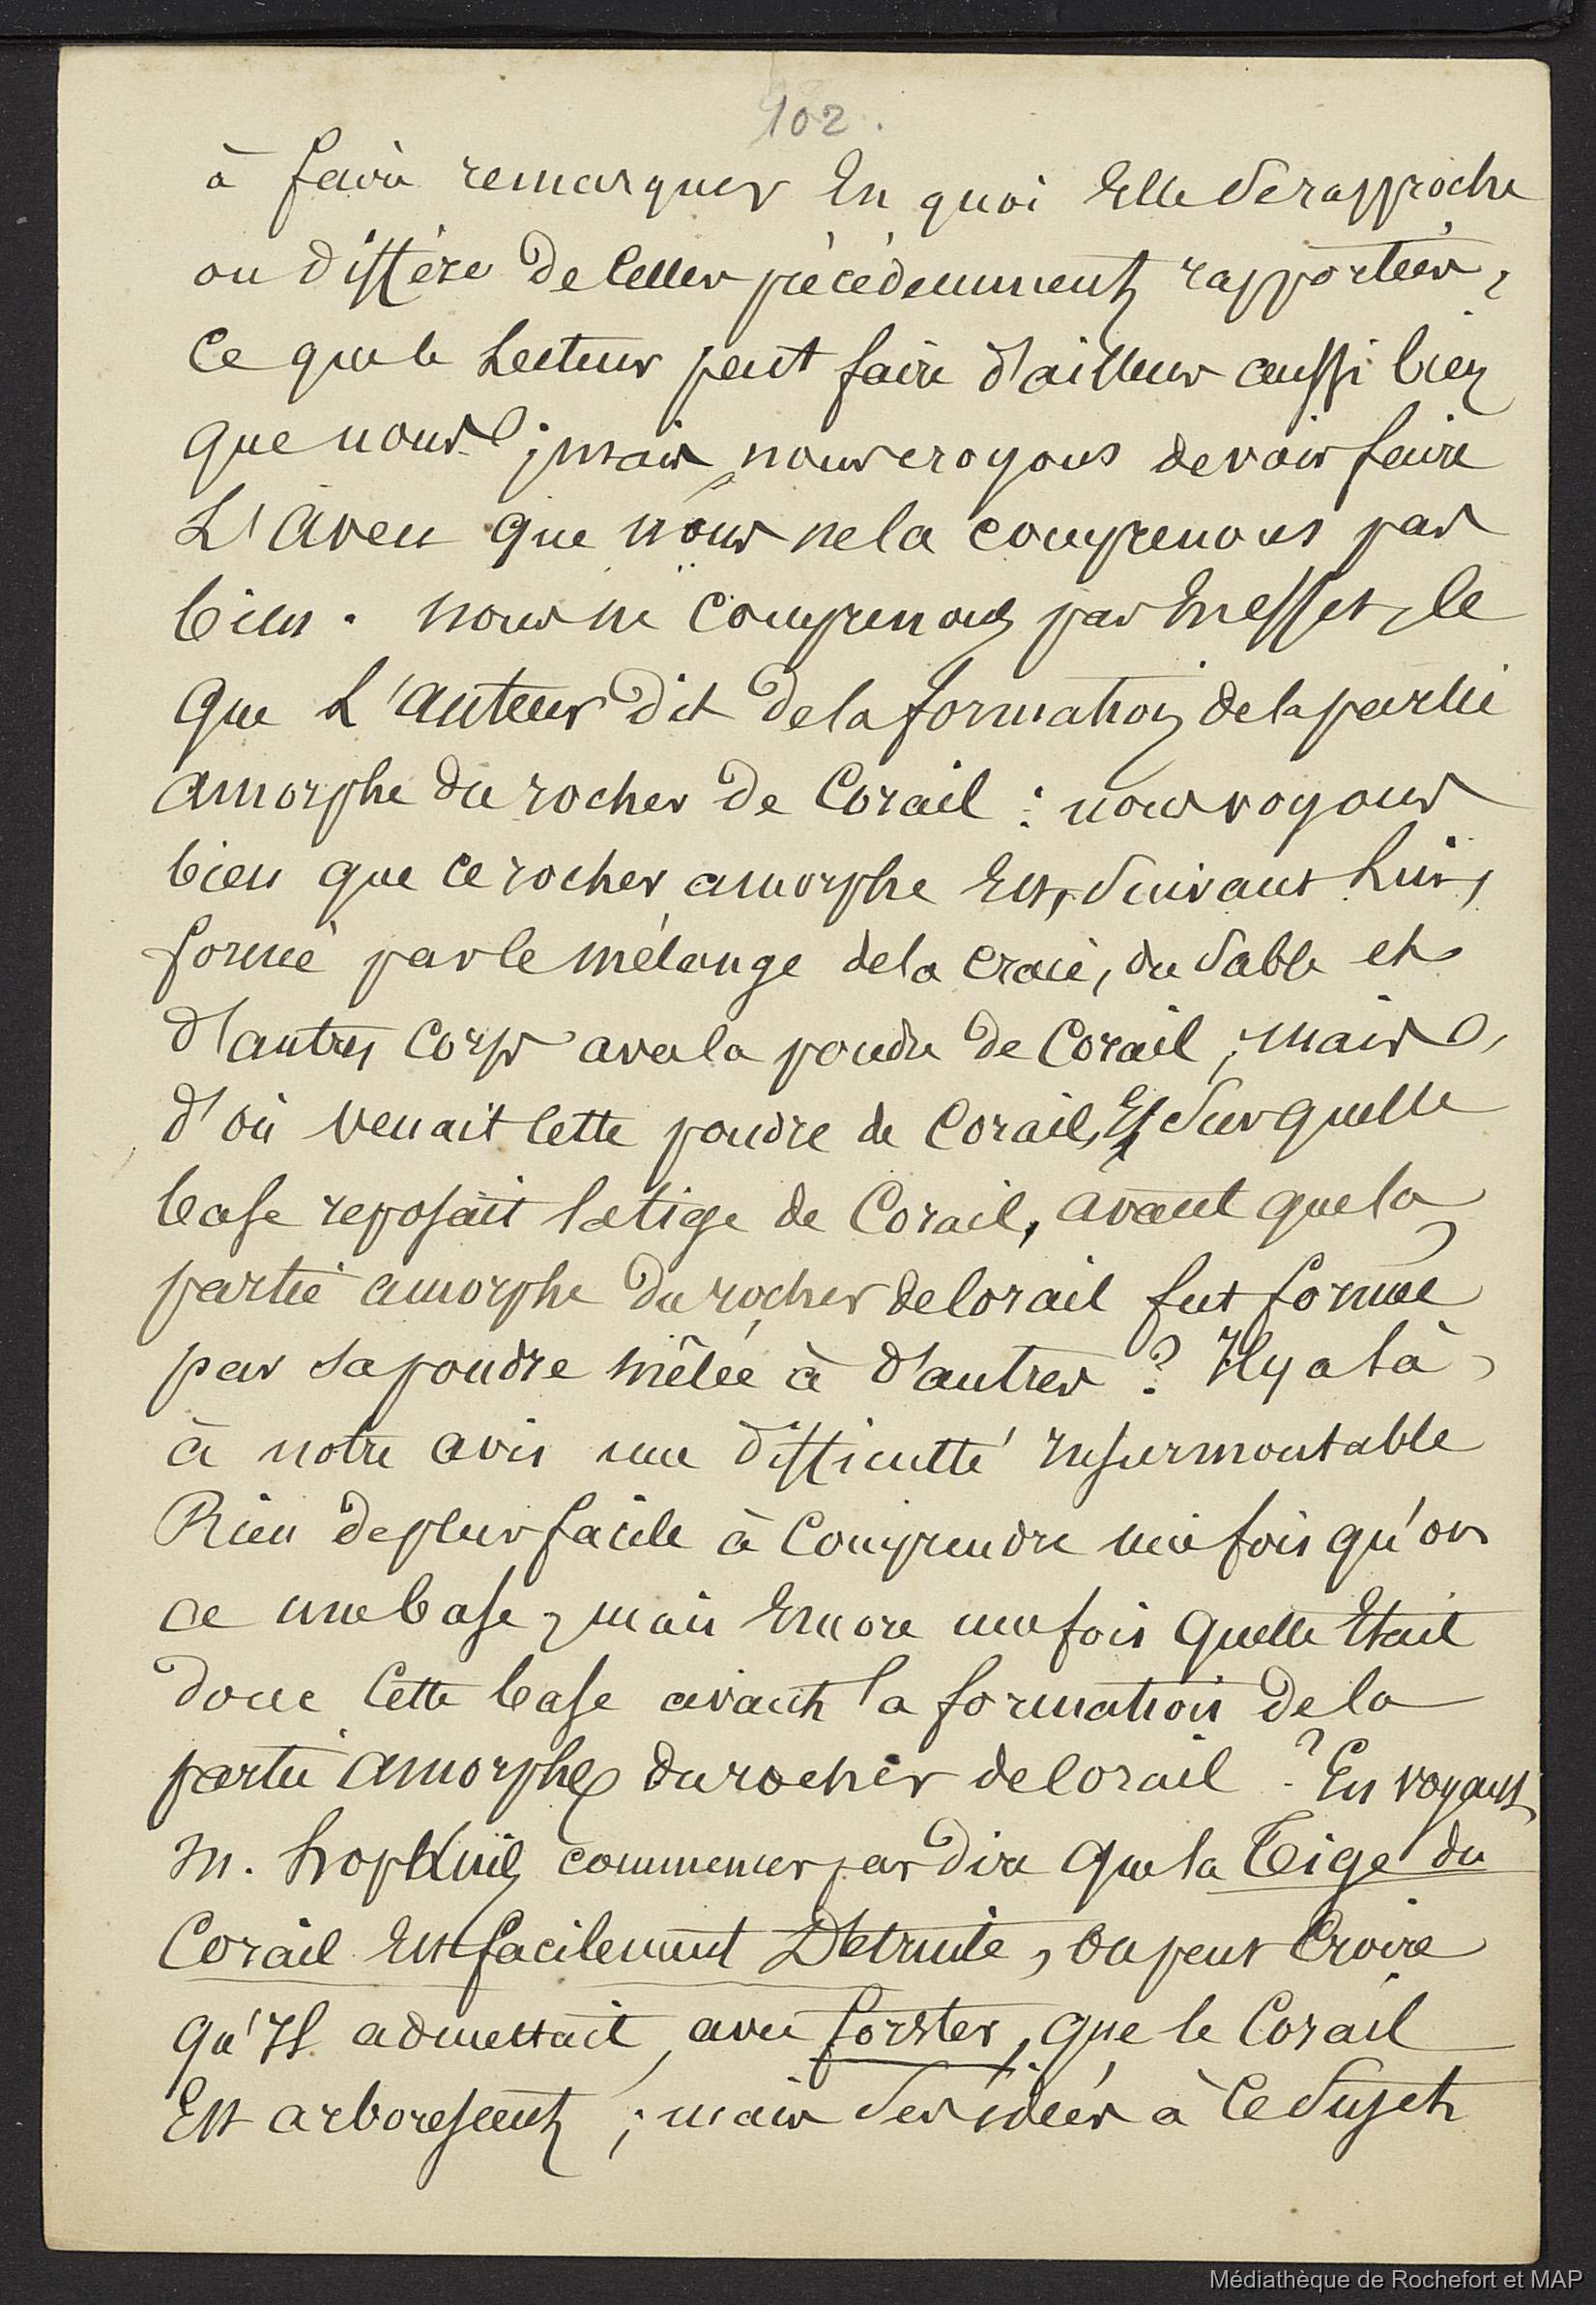 102.
à faire remarquer En quoi Elle se rapproche
ou diffère de Celles précédemment rapportées,
Ce que le Lecteur peut faire d'ailleurs aussi bien
que nous ; mais nous croyons devoir faire
L'Aveu que nous ne la comprenons pas
bien. nous ne Comprenons pas En effet, Ce
que L'auteur dit de la formation de la partie
amorphe du rocher de Corail : nous voyons
bien que ce rocher amorphe Est, Suivant Lui,
formé par le mélange de la craie, du Sable et
d'autres Corps avec la poudre de Corail ; mais
d'où venait Cette poudre de Corail, Et Sur quelle
base reposait la tige de Corail, avant que la
partie amorphe du rocher de Corail fut formée
par sa poudre mêlée à d'autres ? Il y a là,
à notre avis une difficulté insurmontable
Rien de plus facile à Comprendre une fois qu'on
a une base, mais Encore une fois quelle Etait
donc Cette base avant la formation de la
partie amorphe du rocher de Corail ? En voyant
M. hopkins commencer par dire que la Tige du
Corail Est facilement Détruite, on peut Croire
qu'Il admettait, avec forster, que le Corail
Est arborescent ; mais Ses idées à Ce Sujet
Médiathèque de Rochefort et MAP